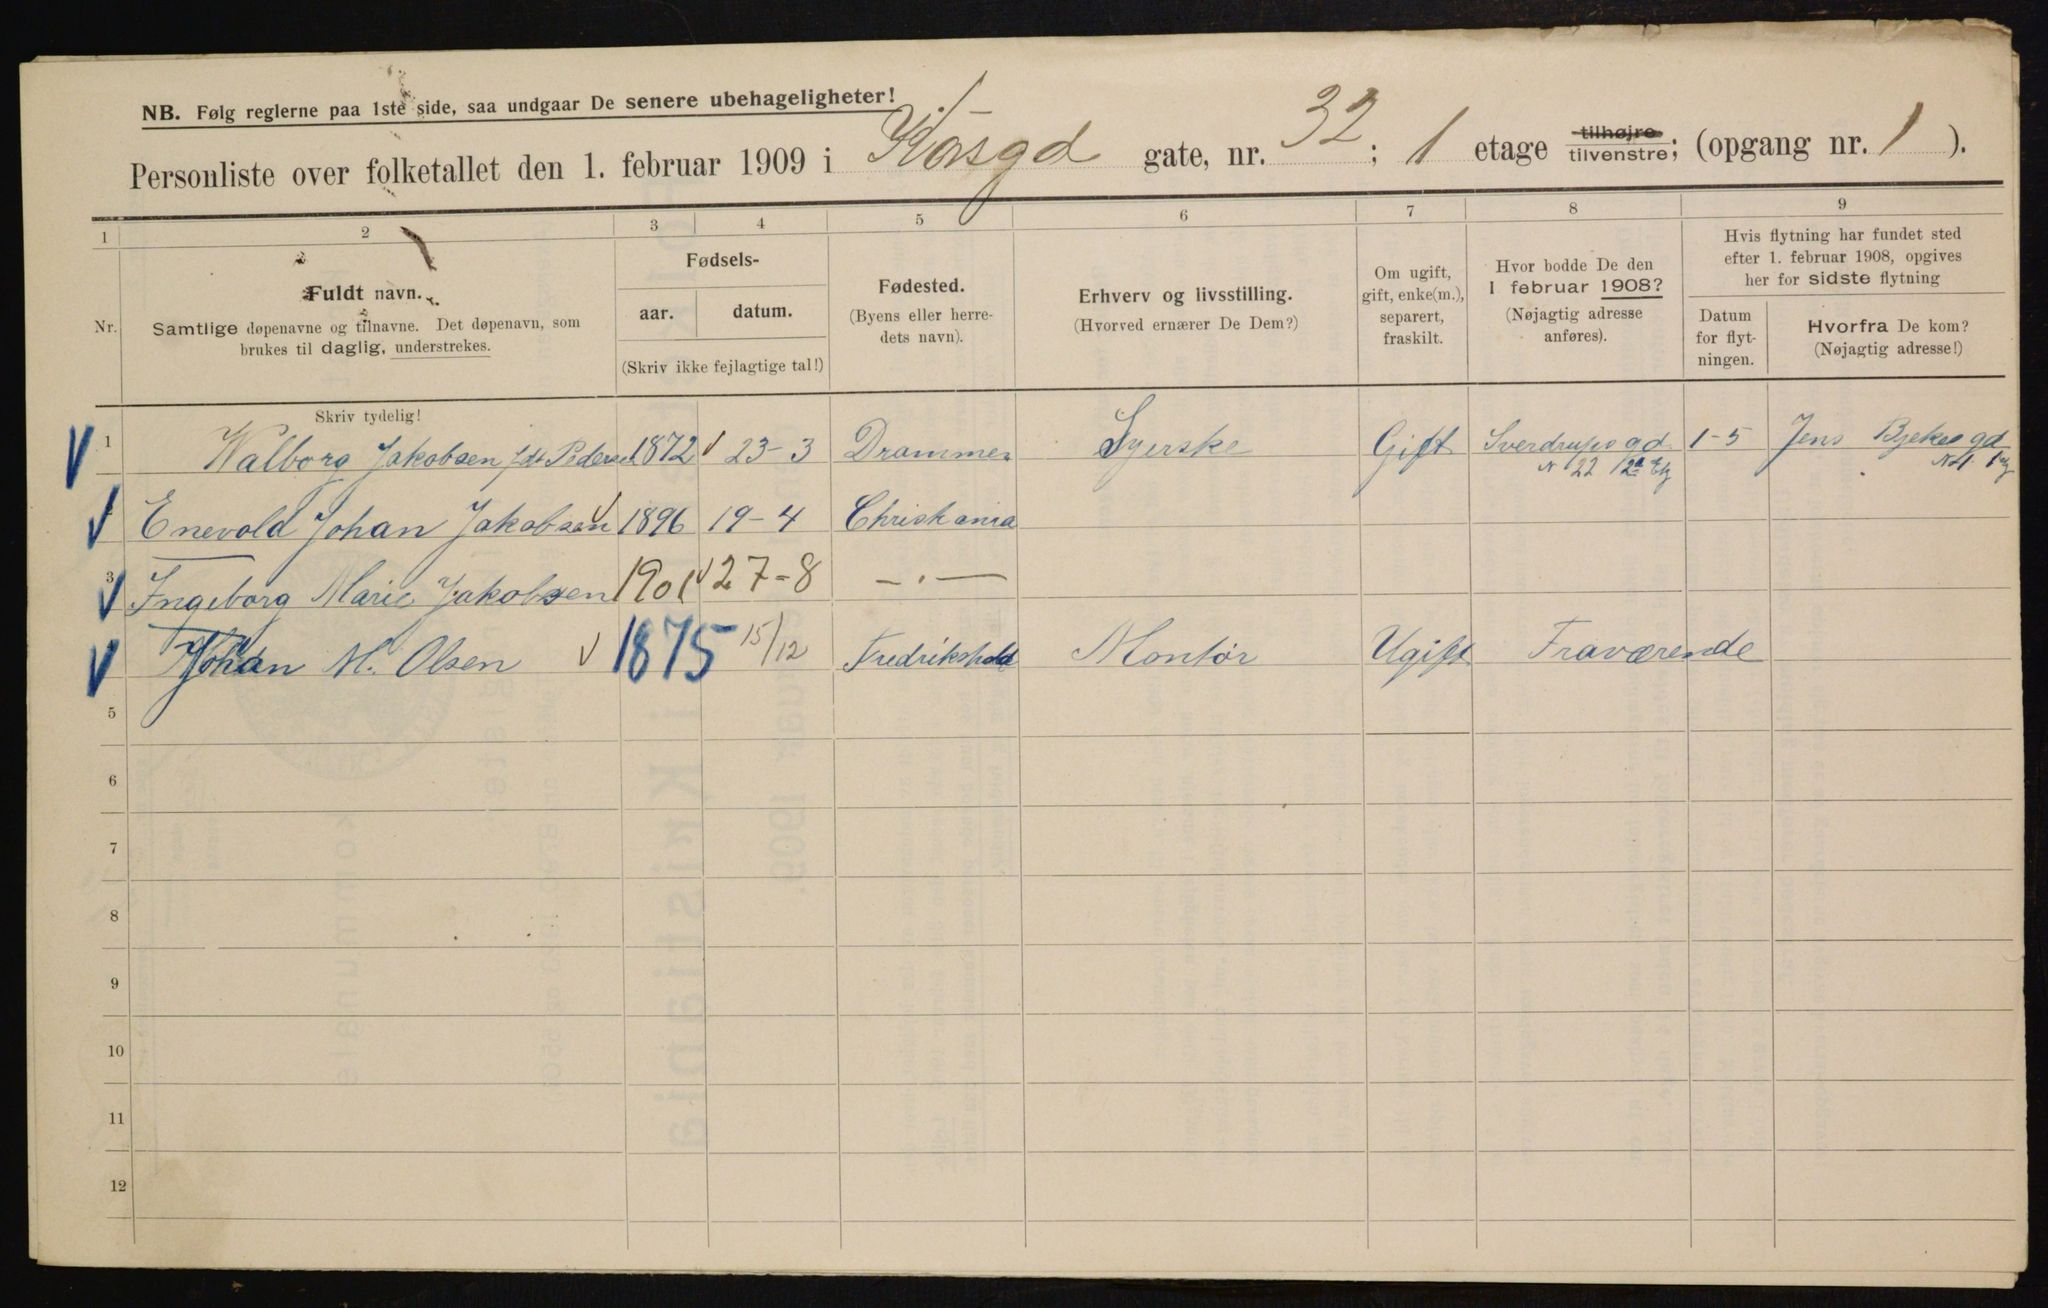 NB. Følg reglerne paa 1ste side, saa undgaar De senere ubehageligheter!
Personliste over folketallet den 1. februar 1909 i gate, nr. 32; 1 etage tilhøjre tilvenstre; (opgang nr. 1).
1 2 3 4 5 6 7 8 9
Nr.
Fuldt navn.
Samtlige døpenavne og tilnavne. Det døpenavn, som
brukes til daglig, understrekes.
Fødsels-
aar. datum.
(Skriv ikke fejlagtige tal!)
Fødested.
(Byens eller herre-
dets navn).
Erhverv og livsstilling.
(Hvorved ernærer De Dem?)
Om ugift,
gift, enke(m.),
separert,
fraskilt.
Hvor bodde De den
1 februar 1908?
(Nøjagtig adresse
anføres).
Hvis flytning har fundet sted
efter 1. februar 1908, opgives
her for sidste flytning
Datum
for flyt-
ningen.
Hvorfra De kom?
(Nøjagtig adresse!)
Skriv tydelig!
1 Valborg Jakobsen fdt Pedersen 1872 23-3 Drammen Syerske Gift Sverdrups gd 1-5 Jens Bjelkes gd
N 22 2 Etg
Enevold Johan Jakobsen 1896 19-4 Christiania
3 Ingeborg Marie Jakobsen 1901 27-8 -.-
Johan M. Olsen 1875 15/12 Fredrikshald Montør Ugift Fraværende
5
6
7
8
9
10
11
12